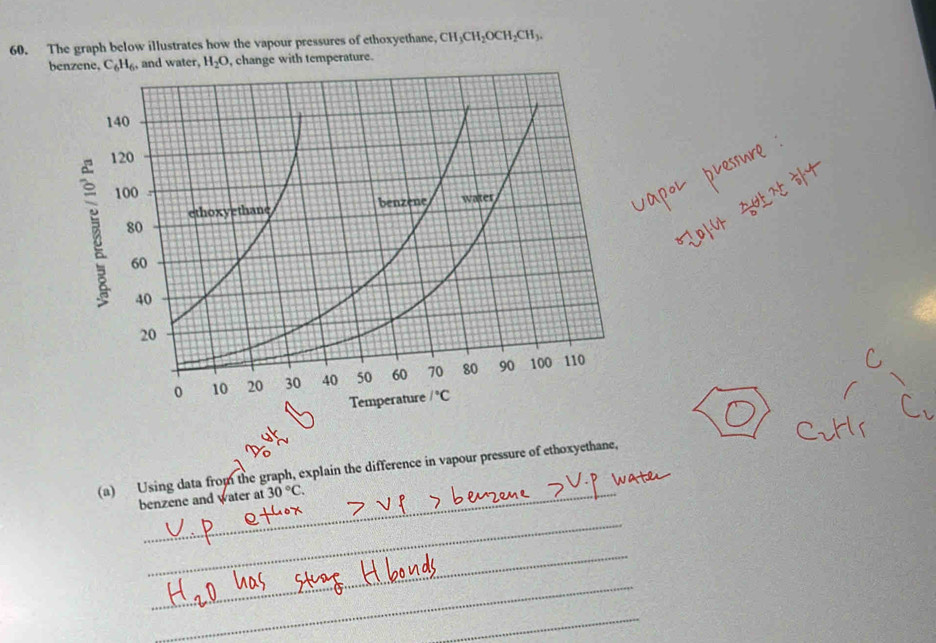 60. The graph below illustrates how the vapour pressures of ethoxyethane, CH₃CH₂OCH₂CH₃,
benzene, C₆H₆, and water, H₂O, change with temperature.
140
120
100
80
60
40
20
Vapour pressure / 10³ Pa
ethoxyethane
benzene
water
0 10 20 30 40 50 60 70 80 90 100 110
Temperature /°C
vapor pressure :
얼마나 증발 잘 하나
C
C₂H₅
(a) Using data from the graph, explain the difference in vapour pressure of ethoxyethane,
benzene and water at 30 °C.
V.P ethox > VP > benzene > V.P water
H₂O has strong H bonds